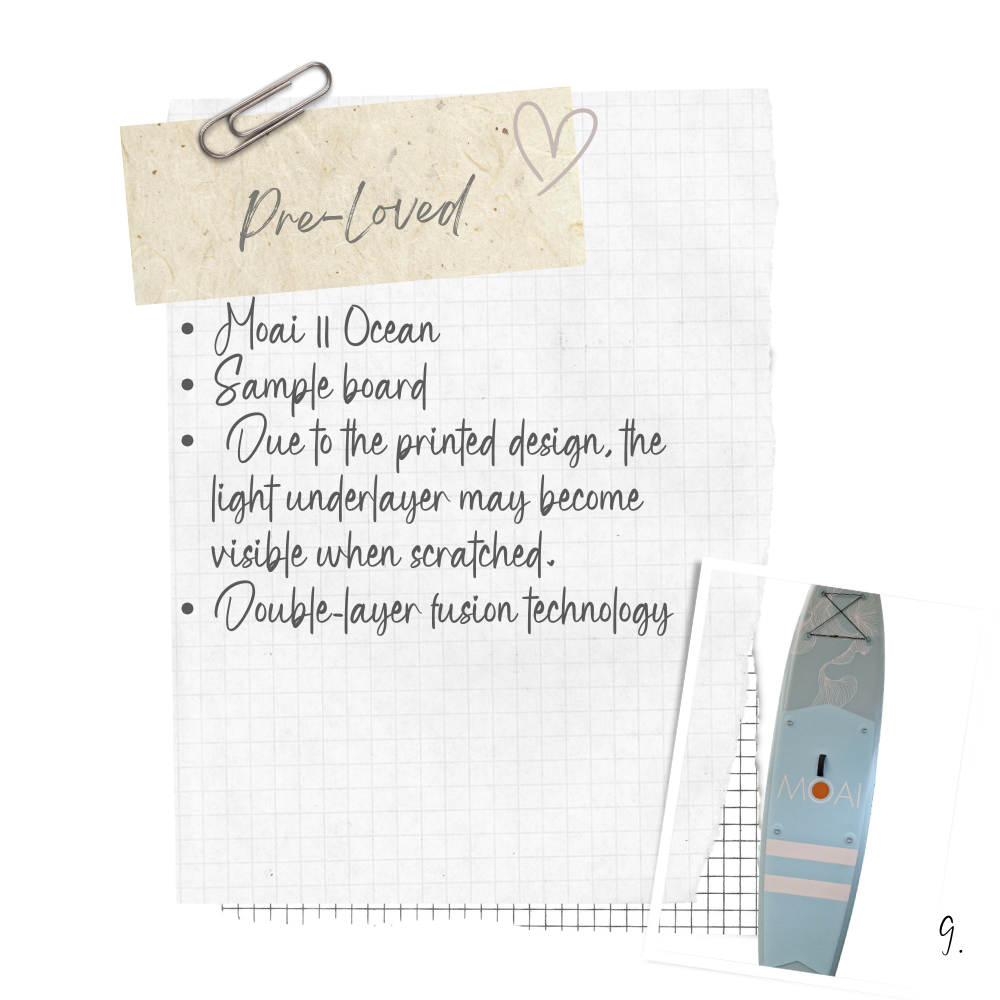 Pre-Loved
• Moai 11 Ocean
• Sample board
• Due to the printed design, the
light underlayer may become
visible when scratched.
• Double-layer fusion technology
MOAI
9.